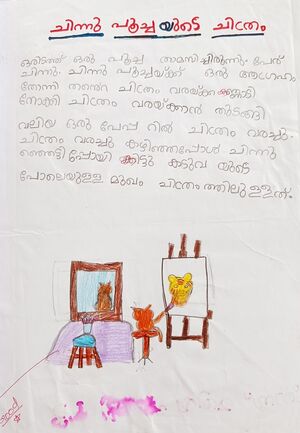 ചിന്നു പൂച്ചയുടെ ചിത്രം
ഒരിടത്ത് ഒരു പൂച്ച താമസിച്ചിരുന്നു. പേര്
ചിന്നു. ചിന്നു പൂച്ചയ്ക്ക് ഒരു ആഗ്രഹം
തോന്നി തന്റെ ചിത്രം വരയ്ക്കാൻ
നോക്കി ചിത്രം വരയ്ക്കാൻ തുടങ്ങി
വലിയ ഒരു പേപ്പറിൽ ചിത്രം വരച്ചു.
ചിത്രം വരച്ചു കഴിഞ്ഞപ്പോൾ ചിന്നു
ഞെട്ടിപ്പോയി കിട്ടു കടുവ യുടെ
പോലെയുള്ള മുഖം ചിത്രത്തിലുള്ളത്.
Good